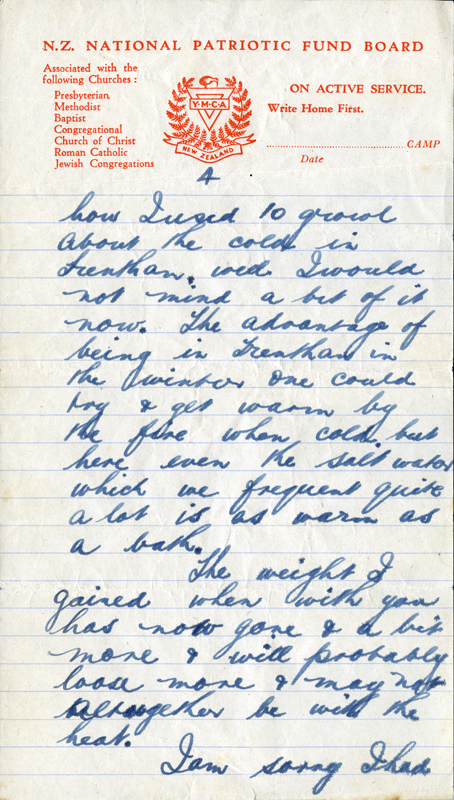 N.Z. NATIONAL PATRIOTIC FUND BOARD
Associated with the
following Churches:
Presbyterian
Methodist
Baptist
Congregational
Church of Christ
Roman Catholic
Jewish Congregations
Y·M·C·A
NEW ZEALAND
ON ACTIVE SERVICE.
Write Home First.
CAMP
Date
4
how I used to growl
about the cold in
Trentham, well I would
not mind a bit of it
now. The advantage of
being in Trentham in
the winter one could
try & get warm by
the fire when cold, but
here even the salt water
which we frequent quite
a lot is as warm as
a bath.
The weight I
gained when with you
has now gone & a bit
more & will probably
loose more & may not
altogether be with the
heat.
I am sorry I had